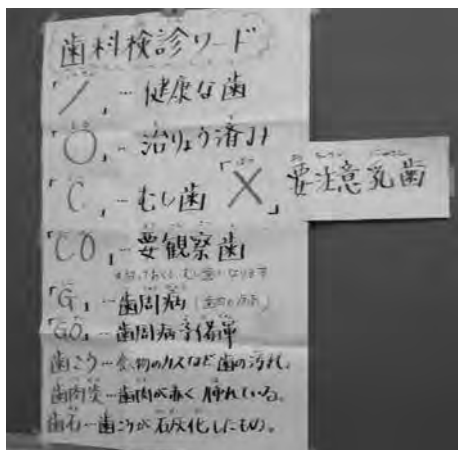 歯科検診ワード
「／」…健康な歯
「○」…治りょう済み
「C」…むし歯
「×」要注意乳歯
「CO」…要観察歯
むし歯になります
「G」…歯周病
「GO」…歯周病予備軍
歯こう…食物のカスなど歯の汚れ。
歯肉炎…歯肉が赤く腫れている。
歯石…歯こうが石灰化したもの。